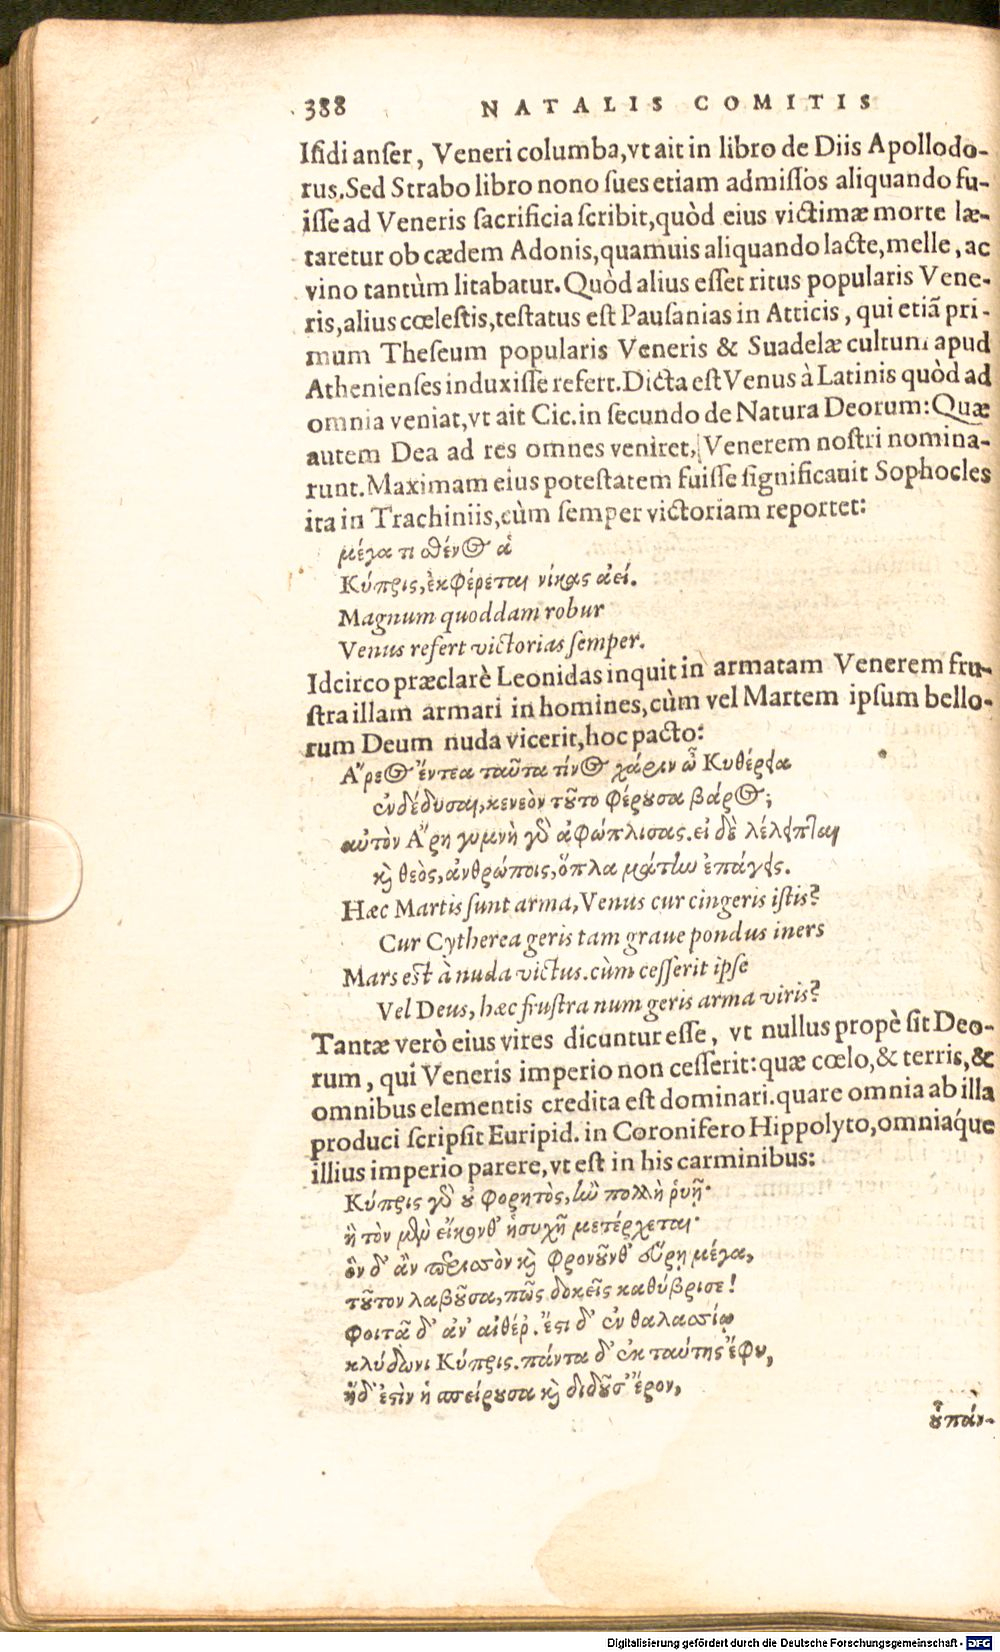 388 NATALIS COMITIS
Isidi anser, Veneri columba, vt ait in libro de Diis Apollodo-
rus. Sed Strabo libro nono sues etiam admissos aliquando fu-
isse ad Veneris sacrificia scribit, quòd eius victimæ morte læ-
taretur ob cædem Adonis, quamuis aliquando lacte, melle, ac
vino tantùm litabatur. Quòd alius esset ritus popularis Vene-
ris, alius cœlestis, testatus est Pausanias in Atticis, qui etiã pri-
mum Theseum popularis Veneris & Suadelæ cultum apud
Athenienses induxisse refert. Dicta est Venus à Latinis quòd ad
omnia veniat, vt ait Cic. in secundo de Natura Deorum: Quæ
autem Dea ad res omnes veniret, Venerem nostri nomina-
runt. Maximam eius potestatem fuisse significauit Sophocles
ita in Trachiniis, cùm semper victoriam reportet:
μέγα τι σθένος ἁ
Κύπρις, ἐκφέρεται νίκας ἀεί.
Magnum quoddam robur
Venus refert victorias semper.
Idcirco præclarè Leonidas inquit in armatam Venerem fru-
stra illam armari in homines, cùm vel Martem ipsum bello-
rum Deum nuda vicerit, hoc pacto:
Ἄρεος ἔντεα ταῦτα τίνος χάριν ὦ Κυθέρεια
ἐνδέδυσαι, κενεὸν τοῦτο φέρουσα βάρος;
αὐτὸν Ἄρη γυμνὴ γὰρ ἀφώπλισας. εἰ δὲ λέλειπται
καὶ θεὸς, ἀνθρώποις, ὅπλα μάτην ἐπάγεις.
Hæc Martis sunt arma, Venus cur cingeris istis?
Cur Cytherea geris tam graue pondus iners
Mars est à nuda victus. cùm cesserit ipse
Vel Deus, hæc frustra num geris arma viris?
Tantæ verò eius vires dicuntur esse, vt nullus propè sit Deo-
rum, qui Veneris imperio non cesserit: quæ cœlo, & terris, &
omnibus elementis credita est dominari. quare omnia ab illa
produci scripsit Euripid. in Coronifero Hippolyto, omniáque
illius imperio parere, vt est in his carminibus:
Κύπρις γὰρ οὐ φορητὸς, ἢν πολλὴ ῥυῇ·
ἣ τὸν μὲν εἴκονθ’ ἡσυχῇ μετέρχεται·
ὃν δ’ ἂν περισσὸν καὶ φρονοῦνθ’ εὕρῃ μέγα,
τοῦτον λαβοῦσα, πῶς δοκεῖς καθύβρισε!
φοιτᾷ δ’ ἀν’ αἰθέρ. ἔστι δ’ ἐν θαλασσίῳ
κλύδωνι Κύπρις. πάντα δ’ ἐκ ταύτης ἔφυ,
ἥδ’ ἐστὶν ἡ σπείρουσα καὶ διδοῦσ’ ἔρον,
οὗ πάν-
Digitalisierung gefördert durch die Deutsche Forschungsgemeinschaft - DFG